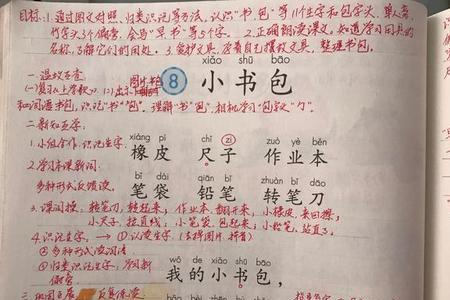 目标:1.通过图文对照、归类识记等方法,认识"书、包"等11个生字和包字头、单人旁、
竹字头3个偏旁,会写"早、书"等5个字。 2.正确朗读课文,知道学习用具的
名称,了解它们的用处。 3.爱护文具,学着自己摆放文具,整理书包。
xiǎo shū bāo
一、温故互查
8 小书包
(一)复习上学歌 (二)出示图片书包
和词语书包,识记"书""包"。理解"书""包",相机学习"包字头"勹"。
二、新知互学:
xiàng pí chǐ zi zuò yè běn
1.小组合作,识记生字
橡皮 尺子 作业本
2.学习本课新词:
bǐ dài qiān bǐ zhuàn bǐ dāo
多种形式反馈读。
笔袋 铅笔 转笔刀
3.课间操:转笔刀,转起来;作业本,翻开来;小橡皮,来回擦;
小尺子,拉直线;小笔袋,包起来;小铅笔,站直了。
4.识记生字, → ①认读生字(去掉图片 拼音)
②多种形式读词语
wǒ de xiǎo shū bāo
③归类识记生字,学习新
我的小书包,
偏旁